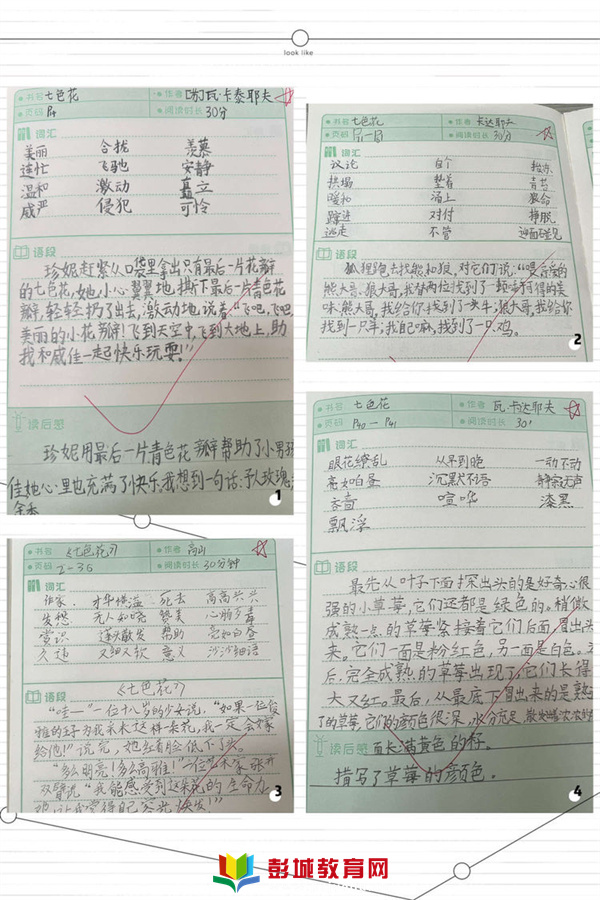 look like
书名 七色花
作者 [苏]瓦·卡泰耶夫
页码 P4
阅读时长 30分
词汇
美丽 合拢 羡慕
连忙 飞驰 安静
温和 激动 矗立
威严 侵犯 可怜
语段
珍妮赶紧从口袋里拿出只有最后一片花瓣
的七色花,她小心翼翼地,撕下最后一片青色花
瓣,轻轻扔了出去,激动地说着:“飞吧,飞吧,
美丽的小花瓣!飞到天空中,飞到大地上,助
我和威佳一起快乐玩耍!”
读后感
珍妮用最后一片青色花瓣帮助了小男孩
佳她心里也充满了快乐。我想到一句话:予人玫瑰,
余香
1
书名 七色花
作者 卡达耶夫
页码
阅读时长 30分
词汇
议论 自个
拱塌 垫着 青苔
暖和 涌上 狠命
蹿进 对付 挣脱
逃走 不管 迎面碰见
语段
狐狸跑去找熊和狼,对它们说:“喂,亲爱的
熊大哥、狼大哥,我替两位找到了一顿了不得的美
味,熊大哥,我给你找到了一头牛;狼大哥,我给你
找到一只羊;我自己嘛,找到了一只鸡。
2
书名 《七色花》
作者 高山
页码 2-36
阅读时长 30分钟
词汇
作家 才华横溢 死去 高高兴兴
发愁 无人知晓 赞美
赏识 连头散发 帮助 亮如白昼
久违 又细又软 意义 沙沙细语
语段
《七色花》
“哇——”一位十八岁的少女说,“如果一位俊
雅的王子为我求来这样一朵花,我一定会嫁
给他!”说完,她红着脸低下了头。
“多么明亮!多么高雅!”一位 张开
双臂说“我能感受到这朵花的生命力
3
书名 七色花
作者 瓦·卡达耶夫
页码 P40－P41
阅读时长 30'
词汇
眼花缭乱 从早到晚 一动不动
亮如白昼 沉默不语 静寂无声
吝啬 喧哗 漆黑
飘浮
语段
最先从叶子下面探出头的是好奇心很
强的小草莓,它们还都是绿色的。稍微
成熟一点的草莓紧接着它们后面冒出头
来。它们一面是粉红色,另一面是白色。
后,完全成熟的草莓出现了,它们长得
大又红。最后,从最底下冒出来的是熟
了的草莓,它们的颜色很深,水分充足,
读后感 面长满黄色的籽。
描写了草莓的颜色。
4
彭城教育网